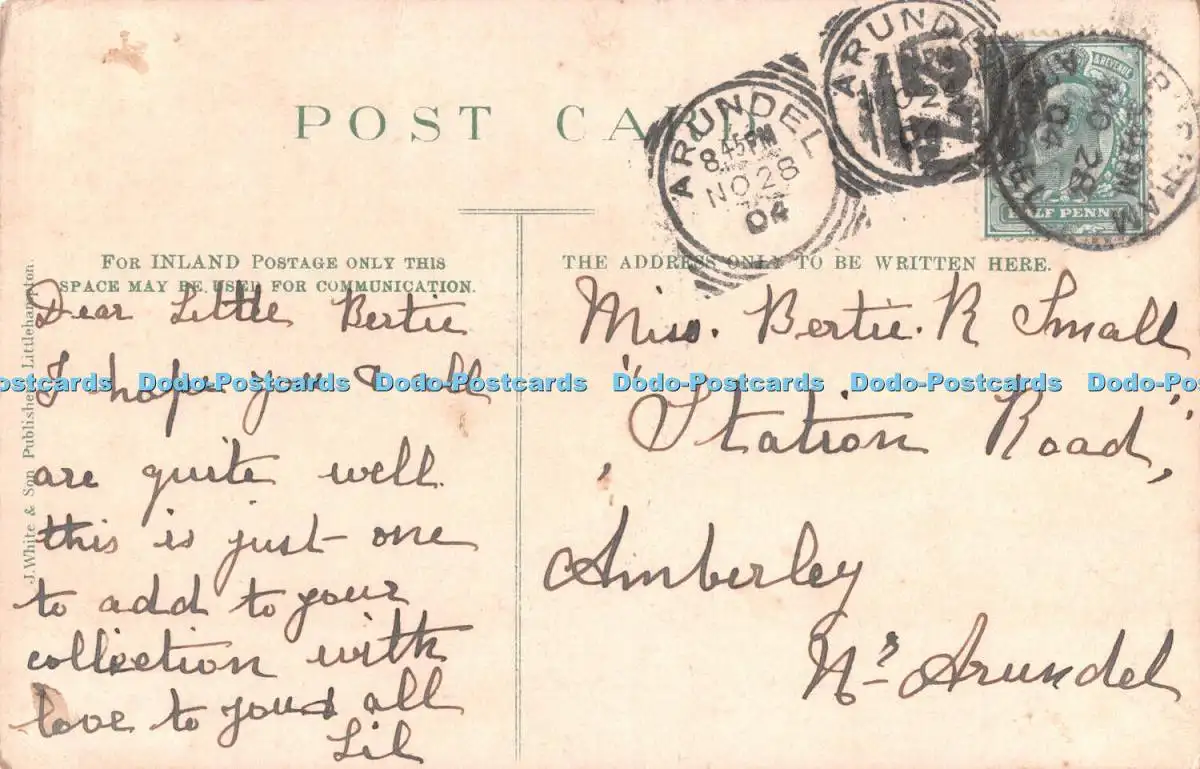 POST CARD
FOR INLAND POSTAGE ONLY THIS
SPACE MAY BE USED FOR COMMUNICATION.
THE ADDRESS ONLY TO BE WRITTEN HERE.
J. White & Son Publishers Littlehampton.
ARUNDEL
8.45PM
NO 28
04
ARUNDEL
NO 28
04
NO 28
04
REVENUE
HALF PENNY
Dear Little Bertie
I hope you & all
are quite well.
this is just one
to add to your
collection with
love to you & all
Lil
Miss. Bertie. R Small
"Station Road",
Amberley
Nr Arundel
Dodo-Postcards Dodo-Postcards Dodo-Postcards Dodo-Postcards Dodo-Postcards Dodo-Postcards